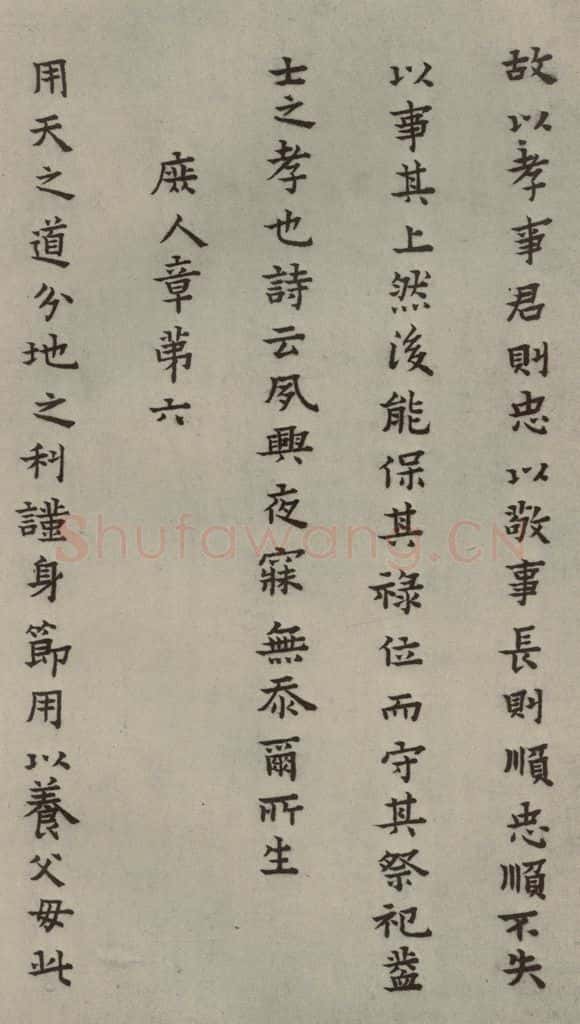 故以孝事君則忠以敬事長則順忠順不失
以事其上然後能保其祿位而守其祭祀蓋
士之孝也詩云夙興夜寐無忝爾所生
庶人章第六
用天之道分地之利謹身節用以養父母此
Shufawang.CN